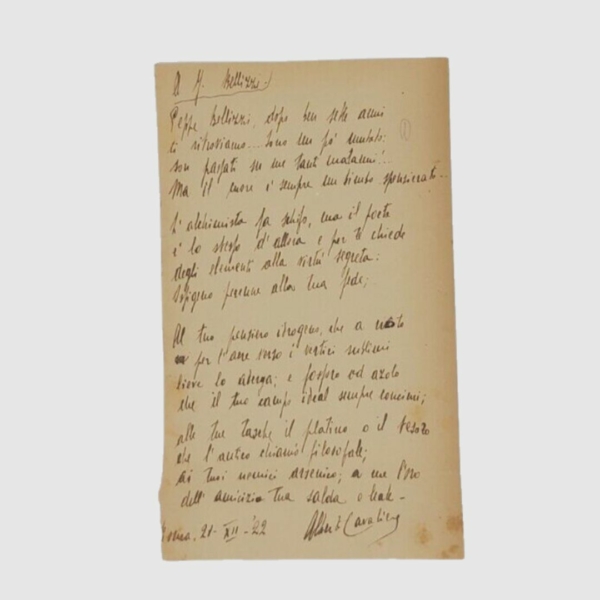 A G. Bellizzi
Peppe Bellizzi, dopo ben sette anni
ti ritroviamo... Sono un po' mutato:
son passati su me tant' malanni!..
Ma il cuore è sempre un bimbo spensierato...
L'alchimista fa schifo, ma il poeta
è lo stesso d'allora e per te chiede
degli elementi alla virtù segreta:
ossigeno perenne alla tua fede;
Al tuo pensiero idrogeno, che a
per l'aere verso i vertici
lieve lo aderga; e fosforo ed azoto
che il tuo campo ideal sempre concimi;
alle tue tasche il platino o il tesoro
che l'antico chiamò filosofale;
ai tuoi nemici arsenico; a me l'oro
dell'amicizia tua salda e leale -
Roma, 21-XII-'22 Alberto Cavaliere